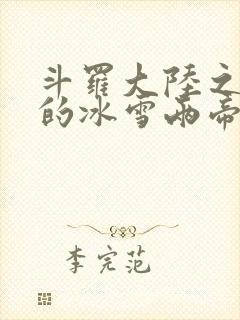 斗羅大陸之
的冰雪兩帝
李完范